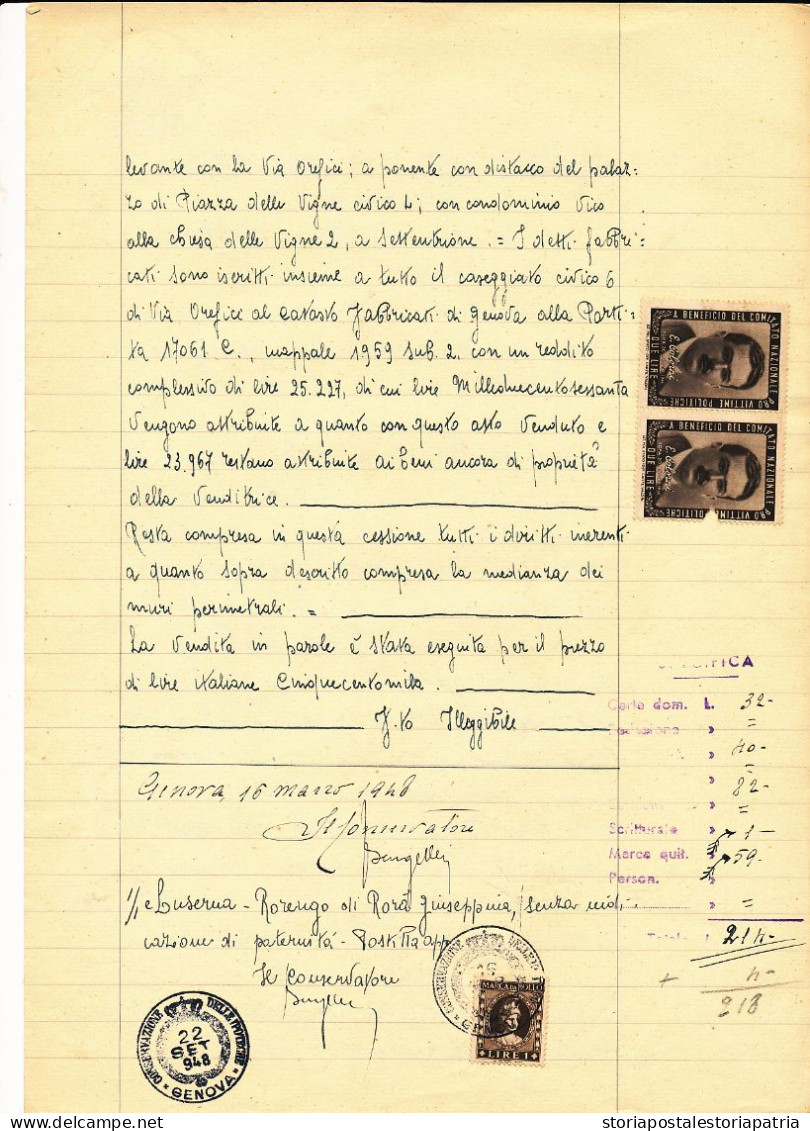 levante con la Via Orefici; a ponente con distacco del palaz-
zo di Piazza delle Vigne civico 4; con condominio Vico
alla Chiesa delle Vigne 2, a settentrione. = I detti fabbri-
cati sono iscritti insieme a tutto il caseggiato civico 6
di Via Orefici al Catasto Fabbricati di Genova alla Parti-
ta 17061 C., mappale 1959 sub. 2. con un reddito
complessivo di lire 25.227, di cui lire Milleduecentosessanta
vengono attribuite a quanto con questo atto venduto e
lire 23.967 restano attribuite ai beni ancora di proprietà
della Venditrice.
Resta compresa in questa cessione tutti i diritti inerenti
a quanto sopra descritto compresa la medianza dei
muri perimetrali. =
La Vendita in parole è stata eseguita per il prezzo
di lire italiane Cinquecentomila.
F.to Illeggibile
Genova, 16 marzo 1948
Il Conservatore
1/ e Luserna - Rorengo di Rorà Giuseppina, senza indi-
cazione di paternità - Postilla app
Il Conservatore
CONSERVAZIONE DELLE IPOTECHE
22
SET
948
GENOVA
CONSERVAZIONE DELLE
MARCA DA BOLLO
LIRE 1
A BENEFICIO DEL COMITATO NAZIONALE
PRO VITTIME POLITICHE
DUE LIRE
E. Colorni
A BENEFICIO DEL COMITATO NAZIONALE
PRO VITTIME POLITICHE
DUE LIRE
E. Colorni
SPECIFICA
Carta dom. L. 32-
» =
» 40-
=
» 82-
=
Scritturale » 1-
Marca quit. » 59-
Person. »
» =
214-
+ 4-
218
storiapostalestoriapatria